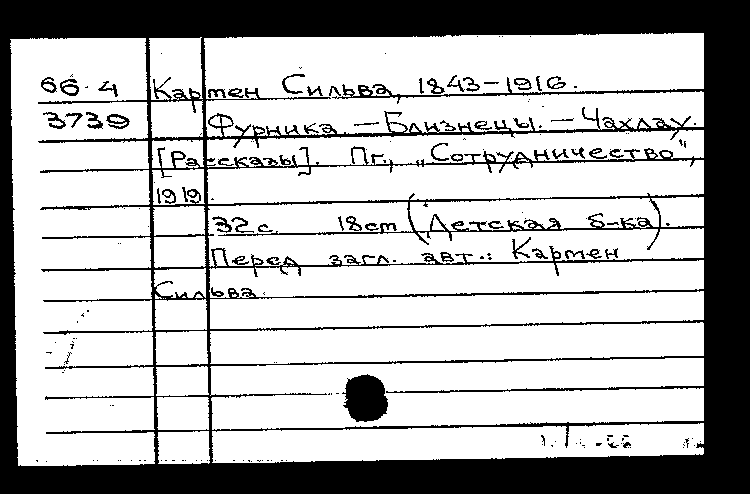 66-4 Кармен Сильва, 1843-1916.
3739 Фурника. - Близнецы. - Чахлау.
[Рассказы]. Пг., "Сотрудничество",
1919.
32 с 18 cm (Детская б-ка).
Перед загл. авт.: Кармен
Сильва.